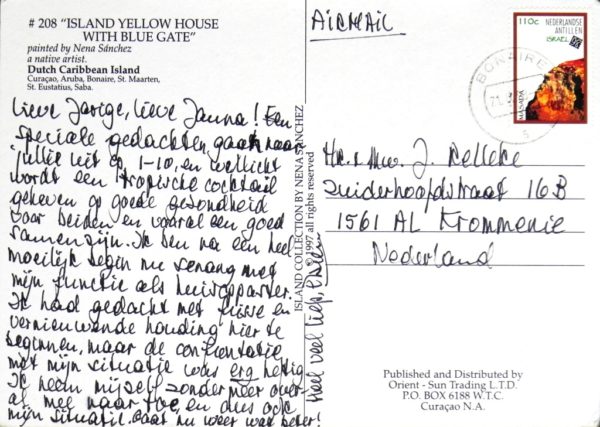 # 208 "ISLAND YELLOW HOUSE
WITH BLUE GATE"
painted by Nena Sánchez
a native artist.
Dutch Caribbean Island
Curaçao, Aruba, Bonaire, St. Maarten,
St. Eustatius, Saba.
Lieve Jarige, lieve Janna! Een
speciale gedachten gaat naar
jullie uit op 1-10, en wellicht
wordt een tropische cocktail
geheven op goede gezondheid
voor beiden en vooral een goed
samenzijn. Ik ben na een heel
moeilijk begin nu senang met
mijn functie als huisoppasser.
Ik had gedacht met frisse en
vernieuwende houding hier te
beginnen, maar de confrontatie
met mijn situatie was erg heftig
Ik neem mijzelf zonder meer over-
al mee naar toe, en dus ook
mijn situatie. Gaat nu weer wat beter!
Heel veel liefs,
ISLAND COLLECTION BY NENA SÁNCHEZ
© 1997 all rights reserved
AIRMAIL
110c NEDERLANDSE
ANTILLEN
ISRAEL
MASADA
BONAIRE
Hr. & Mw. J. Relleke
Zuiderhoofdstraat 16B
1561 AL Krommenie
Nederland
Published and Distributed by
Orient - Sun Trading L.T.D.
P.O. BOX 6188 W.T.C.
Curaçao N.A.